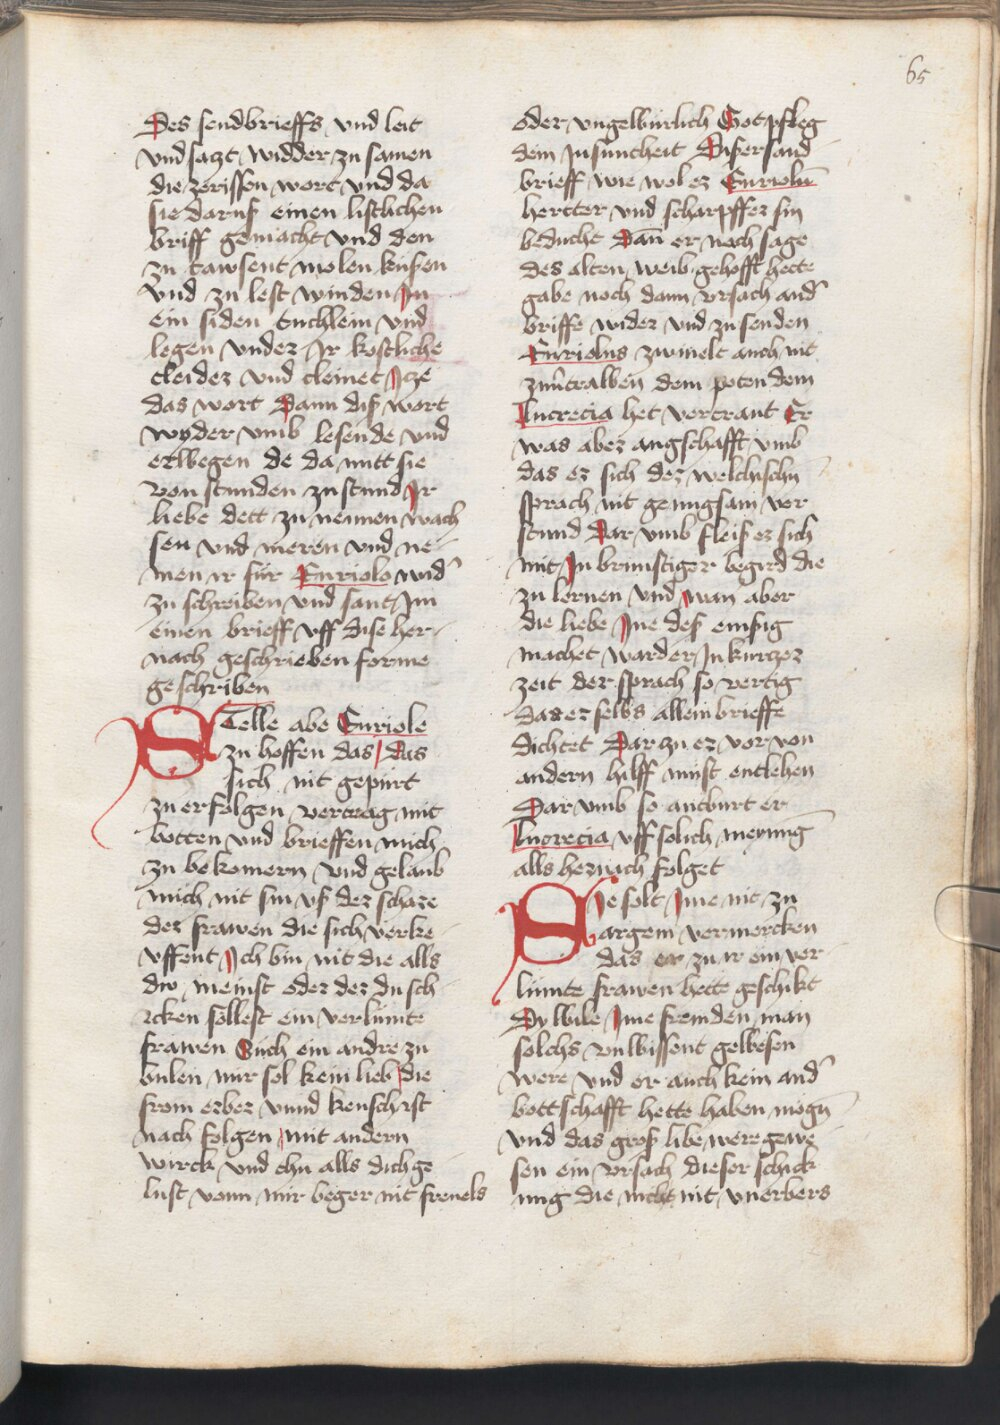 65
Des sendbrieffs vnd leit
vnd satzt widder zu samen
die zerissen wort vnd da
sie daruß einen listlichen
briff gemacht vnd den
zu tawsent molen kußen
vnd zu lest winden In
ein siden tuchlein vnd
legen vnder Ir kostliche
cleider vnd cleinet Itze
das wort Dann diß wort
wyder vmb lesende vnd
erwegen de da mitt sie
von stunden zu stund Ir
liebe dett zu nemen wach
sen vnd meren vnd ne-
men ir für Euriolo wid'
zu schreiben vnd sant Im
einen brieff vff dise her-
nach geschrieben forme
geschriben
STelle abe Euriole
zu hoffen das das
sich nit gepürt
zu erfolgen vertrag mit
botten vnd brieffen mich
zu bekomern vnd gelaub
mich nit sin vß der schare
der frawen die sich verke
uffent Ich bin nit die alls
du meinst oder der du sch
icken söllest ein verlümte
frawen Such ein andre zu
bulen mir sol kein lieb die
from erber vnnd keusch ist
nach folgen mit andern
wirck vnd thu alls dich ge
lust vonn mir beger nit freuels
oder vngelburlich Got pfleg
dem Jusuntheit Dißer sand
brieff wie wol er Euriolū
hertter vnd scharpffer sin
beducht Dañ er noch sage
des alten weib gehofft hette
gabe noch dann vrsach and'
briffe wider vnd zu senden
Euriolus zwinelt auch nit
zuu͂tralben dem poten dem
Lucrecia het vertrant Er
was aber angschafft vmb
das er sich der welchischn
sprach nit genugsam ver
stund Dar vmb fleiß er sich
mit In brunstiger begird die
zu lernen vnd wan aber
die liebe Ine deß emßig
machet warder In kurtzer
zeit der sprach so vertig
das er selbs allein brieffe
dichtet Dar zu er vor von
andern hilff must entlehen
Dar vmb so antburt er
Lucrecia vff solich meynung
alls hernach folget
SIe solt Ime nit zu
argem vermercken
das er zu ir ein ver
lümte frawen hette geschikt
Dylwile Ime fremden man
solchs vnwissent gelbesen
were vnd er auch kein and'
bottschafft hette haben mögn
vnd das groß libe were gewe
sen ein vrsach dieser schick
ung die nicht nit vnerbers